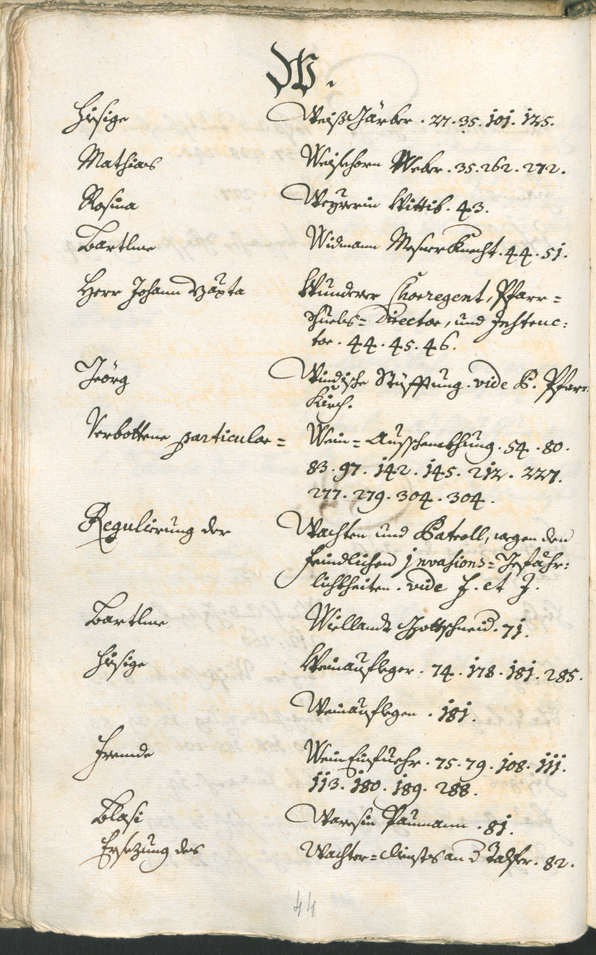 W.
Hiesige Weißgärber . 27. 35. 101. 125.
Mathias Weishorn Weber. 35. 262. 272.
Rosina Weyrerin Wittib. 43.
Bartlme Widmann Mesner Knecht. 44. 51.
Herr Johann Bapta Wunderer Choregent, Pfarr=
Schuels= Director, und Instruc:
tor. 44. 45. 46.
Jeörg Windische Stüfftung. vide K. Pfarr
Kirch.
Verbottene particular= Wein= Ausschenkhung. 54. 80.
83. 97. 142. 145. 212. 227.
277. 279. 304. 304.
Regulierung der Wachten und Patroll, wegen den
feindlichen invasions= Gefähr:
lichkheiten. vide F. et J.
Bartlme Wiellandt 71.
Hiesige Weinaufleger. 74. 178. 181. 285.
Weinauflegen. 181.
Fremde Wein Einfuehr. 75. 79. 108. 111.
113. 180. 189. 288.
Blasi Paumann. 81.
Ersezung des Wachter= diensts an d Talfer. 82.
44